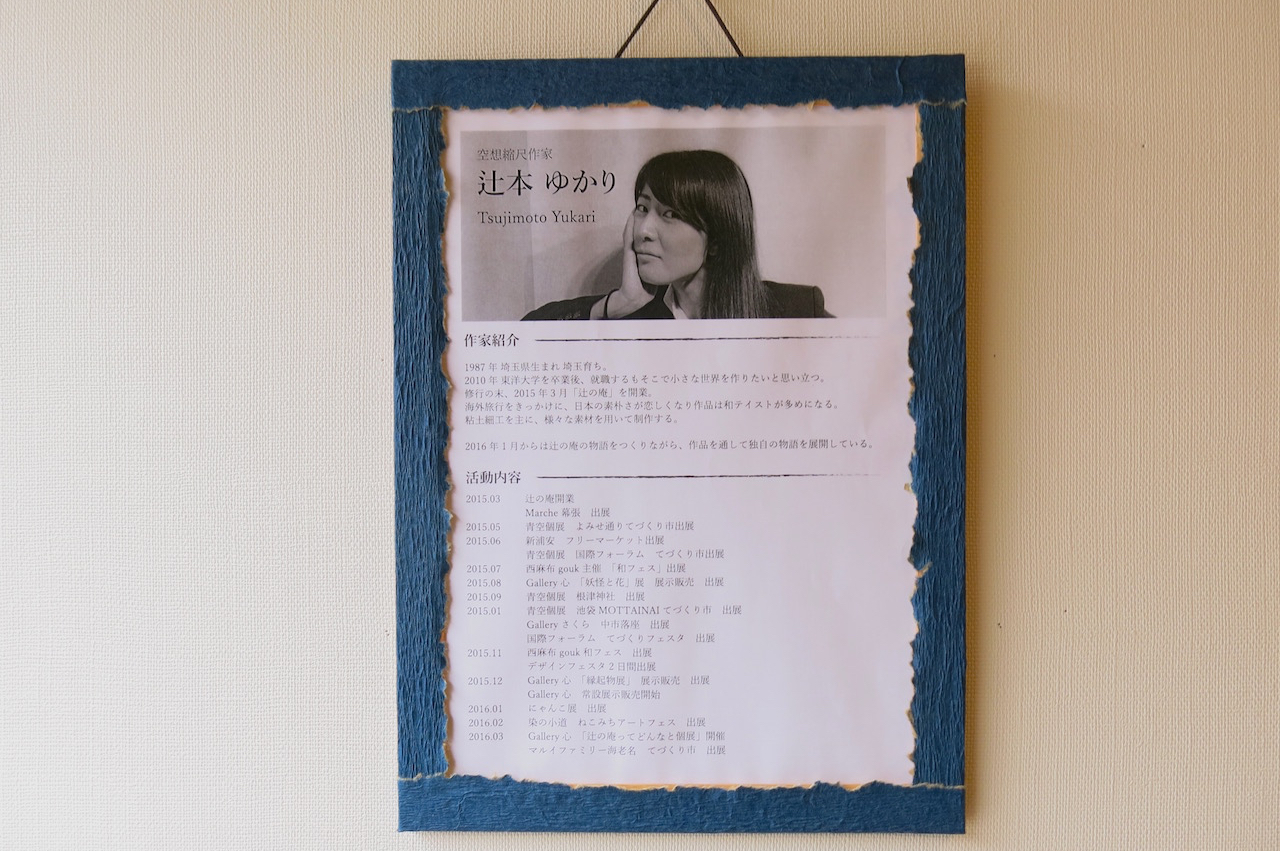 空想縮尺作家
辻本 ゆかり
Tsujimoto Yukari
作家紹介
1987 年 埼玉県生まれ 埼玉育ち。
2010 年 東洋大学を卒業後、就職するもそこで小さな世界を作りたいと思い立つ。
修行の末、2015 年 3 月「辻の庵」を開業。
海外旅行をきっかけに、日本の素朴さが恋しくなり作品は和テイストが多めになる。
粘土細工を主に、様々な素材を用いて制作する。
2016 年 1 月からは辻の庵の物語をつくりながら、作品を通して独自の物語を展開している。
活動内容
2015.03 辻の庵開業
Marche 幕張 出展
2015.05 青空個展 よみせ通りてづくり市出展
2015.06 新浦安 フリーマーケット出展
青空個展 国際フォーラム てづくり市出展
2015.07 西麻布 gouk 主催 「和フェス」出展
2015.08 Gallery 心 「妖怪と花」展 展示販売 出展
2015.09 青空個展 根津神社 出展
2015.01 青空個展 池袋 MOTTAINAI てづくり市 出展
Gallery さくら 中市落座 出展
国際フォーラム てづくりフェスタ 出展
2015.11 西麻布 gouk 和フェス 出展
デザインフェスタ 2 日間出展
2015.12 Gallery 心 「縁起物展」 展示販売 出展
Gallery 心 常設展示販売開始
2016.01 にゃんこ展 出展
2016.02 染の小道 ねこみちアートフェス 出展
2016.03 Gallery 心 「辻の庵ってどんなと個展」開催
マルイファミリー海老名 てづくり市 出展